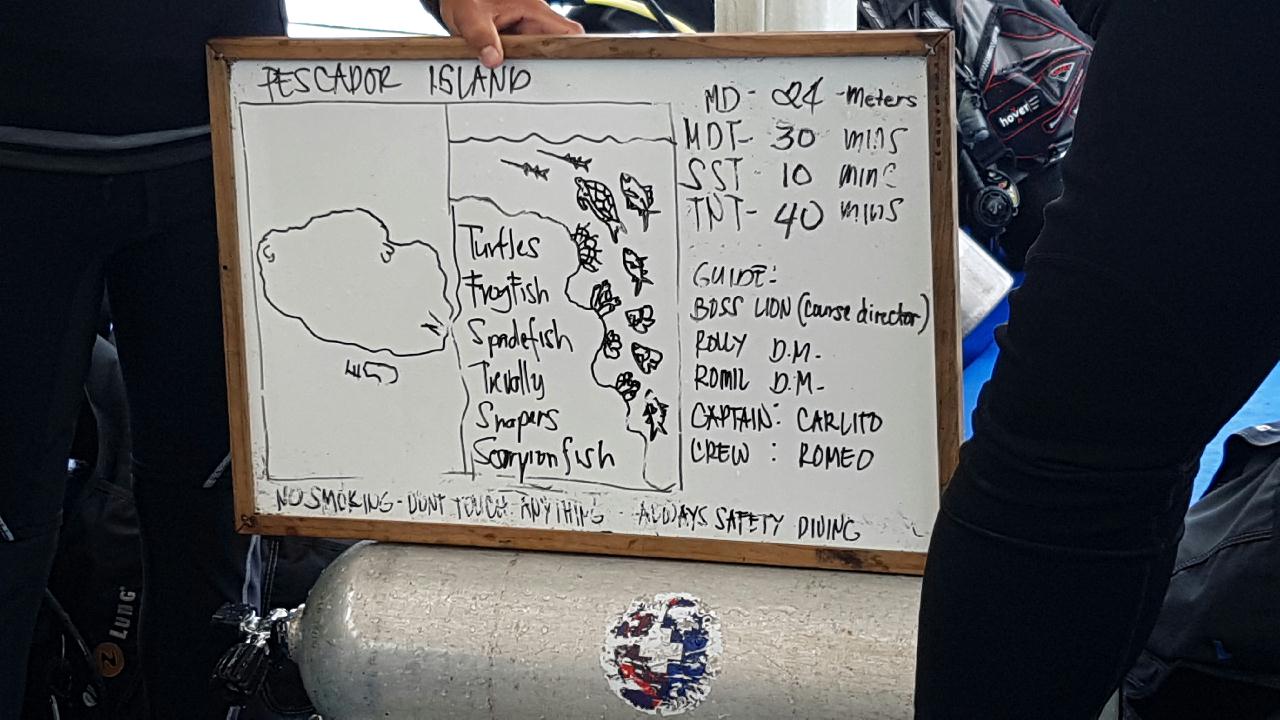 PESCADOR ISLAND
MD - 24 - Meters
MDT - 30 mins
SST - 10 mins
TNT - 40 mins
GUIDE:
BOSS LION (Course director)
ROLLY D.M.
ROMIL D.M.
CAPTAIN: CARLITO
CREW : ROMEO
Turtles
Frogfish
Spadefish
Trevally
Snapers
Scorpionfish
NO SMOKING - DONT TOUCH ANYTHING - ALWAYS SAFETY DIVING
hover
LUNG